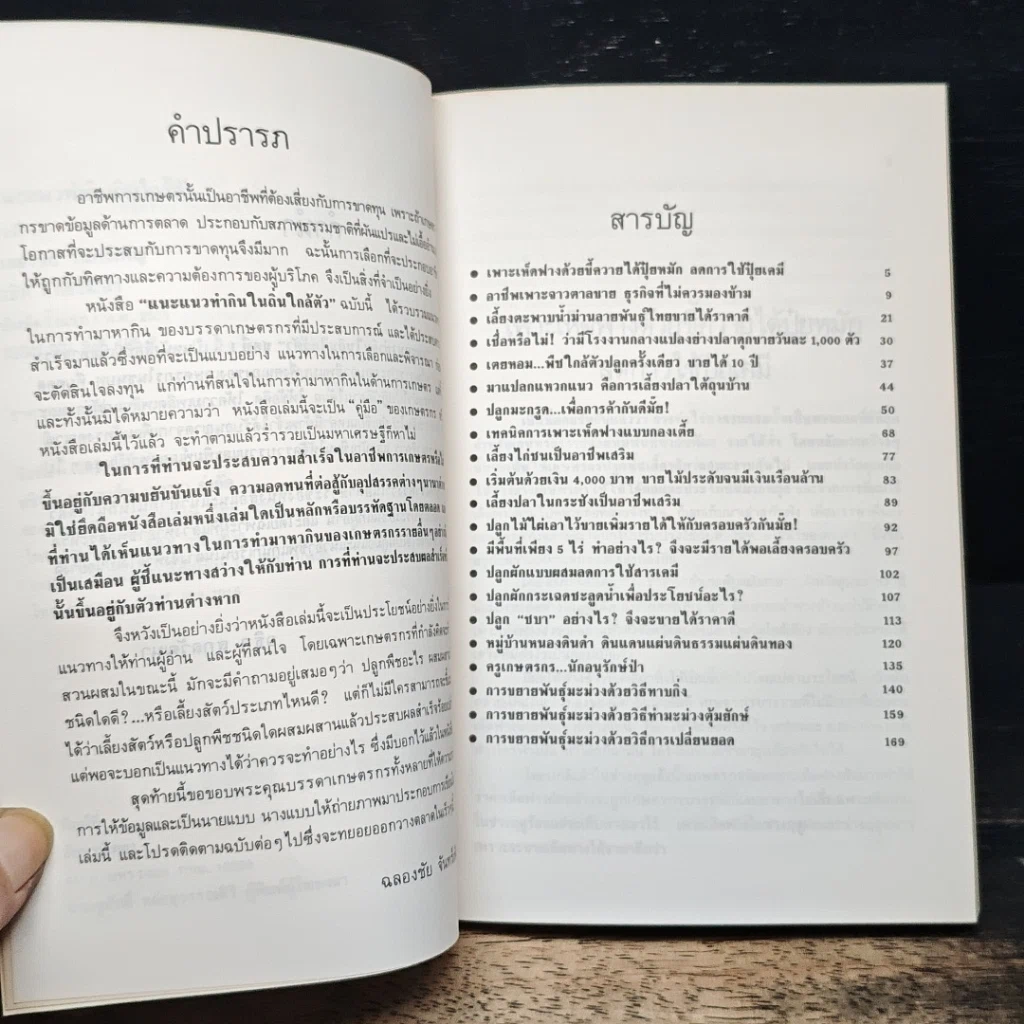 คำปรารภ
อาชีพการเกษตรนั้นเป็นอาชีพที่ต้องเสี่ยงกับการขาดทุน เพราะถ้า
กรขาดข้อมูลด้านการตลาด ประกอบกับสภาพธรรมชาติที่ผันแปรและไม่
โอกาสที่จะประสบกับการขาดทุนจึงมีมาก ฉะนั้นการเลือกที่จะ
ให้ถูกกับทิศทางและความต้องการของผู้บริโภค จึงเป็นสิ่งที่จำเป็นอย่างยิ่ง
หนังสือ "แนะแนวทำกินในถิ่นใกล้ตัว" ฉบับนี้ ได้รวบรวม
ในการทำมาหากิน ของบรรดาเกษตรกรที่มีประสบการณ์ และได้
สำเร็จมาแล้วซึ่งพอที่จะเป็นแบบอย่าง แนวทางในการเลือกและพิจารณา
จะตัดสินใจลงทุน แก่ท่านที่สนใจในการทำมาหากินในด้านการเกษตร
และทั้งนั้นมิได้หมายความว่า หนังสือเล่มนี้จะเป็น "คู่มือ" ของเกษตรกร
หนังสือเล่มนี้ไว้แล้ว จะทำตามแล้วร่ำรวยเป็นมหาเศรษฐีก็หาไม่
ในการที่ท่านจะประสบความสำเร็จในอาชีพการเกษตร
ขึ้นอยู่กับความขยันขันแข็ง ความอดทนที่ต่อสู้กับอุปสรรคต่างๆ
มิใช่ยึดถือหนังสือเล่มหนึ่งเล่มใดเป็นหลักหรือบรรทัดฐานโดยตลอด
ที่ท่านได้เห็นแนวทางในการทำมาหากินของเกษตรกรรายอื่นๆ
เป็นเสมือน ผู้ชี้แนะทางสว่างให้กับท่าน การที่ท่านจะประสบผลสำเร็จ
นั้นขึ้นอยู่กับตัวท่านต่างหาก
จึงหวังเป็นอย่างยิ่งว่าหนังสือเล่มนี้จะเป็นประโยชน์อย่างยิ่ง
แนวทางให้ท่านผู้อ่าน และผู้ที่สนใจ โดยเฉพาะเกษตรกรที่กำลัง
สวนผสมในขณะนี้ มักจะมีคำถามอยู่เสมอๆว่า ปลูกพืชอะไร
ชนิดใดดี?...หรือเลี้ยงสัตว์ประเภทไหนดี? แต่ก็ไม่มีใครสามารถ
ได้ว่าเลี้ยงสัตว์หรือปลูกพืชชนิดใดผสมผสานแล้วประสบผลสำเร็จ
แต่พอจะบอกเป็นแนวทางได้ว่าควรจะทำอย่างไร ซึ่งมีบอกไว้แล้ว
สุดท้ายนี้ขอขอบพระคุณบรรดาเกษตรกรทั้งหลายที่ให้
การให้ข้อมูลและเป็นนายแบบ นางแบบให้ถ่ายภาพมาประกอบ
เล่มนี้ และโปรดติดตามฉบับต่อๆไปซึ่งจะทยอยออกวางตลาด
ฉลองชัย
สารบัญ
● เพาะเห็ดฟางด้วยขี้ควายได้ปุ๋ยหมัก ลดการใช้ปุ๋ยเคมี 5
● อาชีพเพาะจาวตาลขาย ธุรกิจที่ไม่ควรมองข้าม 9
● เลี้ยงตะพาบน้ำม่านลายพันธุ์ไทยขายได้ราคาดี 21
● เชื่อหรือไม่! ว่ามีโรงงานกลางแปลงย่างปลาดุกขายวันละ 1,000 ตัว 30
● เตยหอม...พืชใกล้ตัวปลูกครั้งเดียว ขายได้ 10 ปี 37
● มาแปลกแหวกแนว คือการเลี้ยงปลาใต้ถุนบ้าน 44
● ปลูกมะกรูด...เพื่อการค้ากันดีมั๊ย! 50
● เทคนิคการเพาะเห็ดฟางแบบกองเตี้ย 68
● เลี้ยงไก่ชนเป็นอาชีพเสริม 77
● เริ่มต้นด้วยเงิน 4,000 บาท ขายไม้ประดับจนมีเงินเรือนล้าน 83
● เลี้ยงปลาในกระชังเป็นอาชีพเสริม 89
● ปลูกไม้ไผ่เอาไว้ขายเพิ่มรายได้ให้กับครอบครัวกันมั๊ย! 92
● มีพื้นที่เพียง 5 ไร่ ทำอย่างไร? จึงจะมีรายได้พอเลี้ยงครอบครัว 97
● ปลูกผักแบบผสมลดการใช้สารเคมี 102
● ปลูกผักกระเฉดชะลูดน้ำเพื่อประโยชน์อะไร? 107
● ปลูก "ชบา" อย่างไร? จึงจะขายได้ราคาดี 113
● หมู่บ้านหนองดินดำ ดินแดนแผ่นดินธรรมแผ่นดินทอง 120
● ครูเกษตรกร...นักอนุรักษ์ป่า 135
● การขยายพันธุ์มะม่วงด้วยวิธีทาบกิ่ง 140
● การขยายพันธุ์มะม่วงด้วยวิธีทำมะม่วงตุ้มยักษ์ 159
● การขยายพันธุ์มะม่วงด้วยวิธีการเปลี่ยนยอด 169